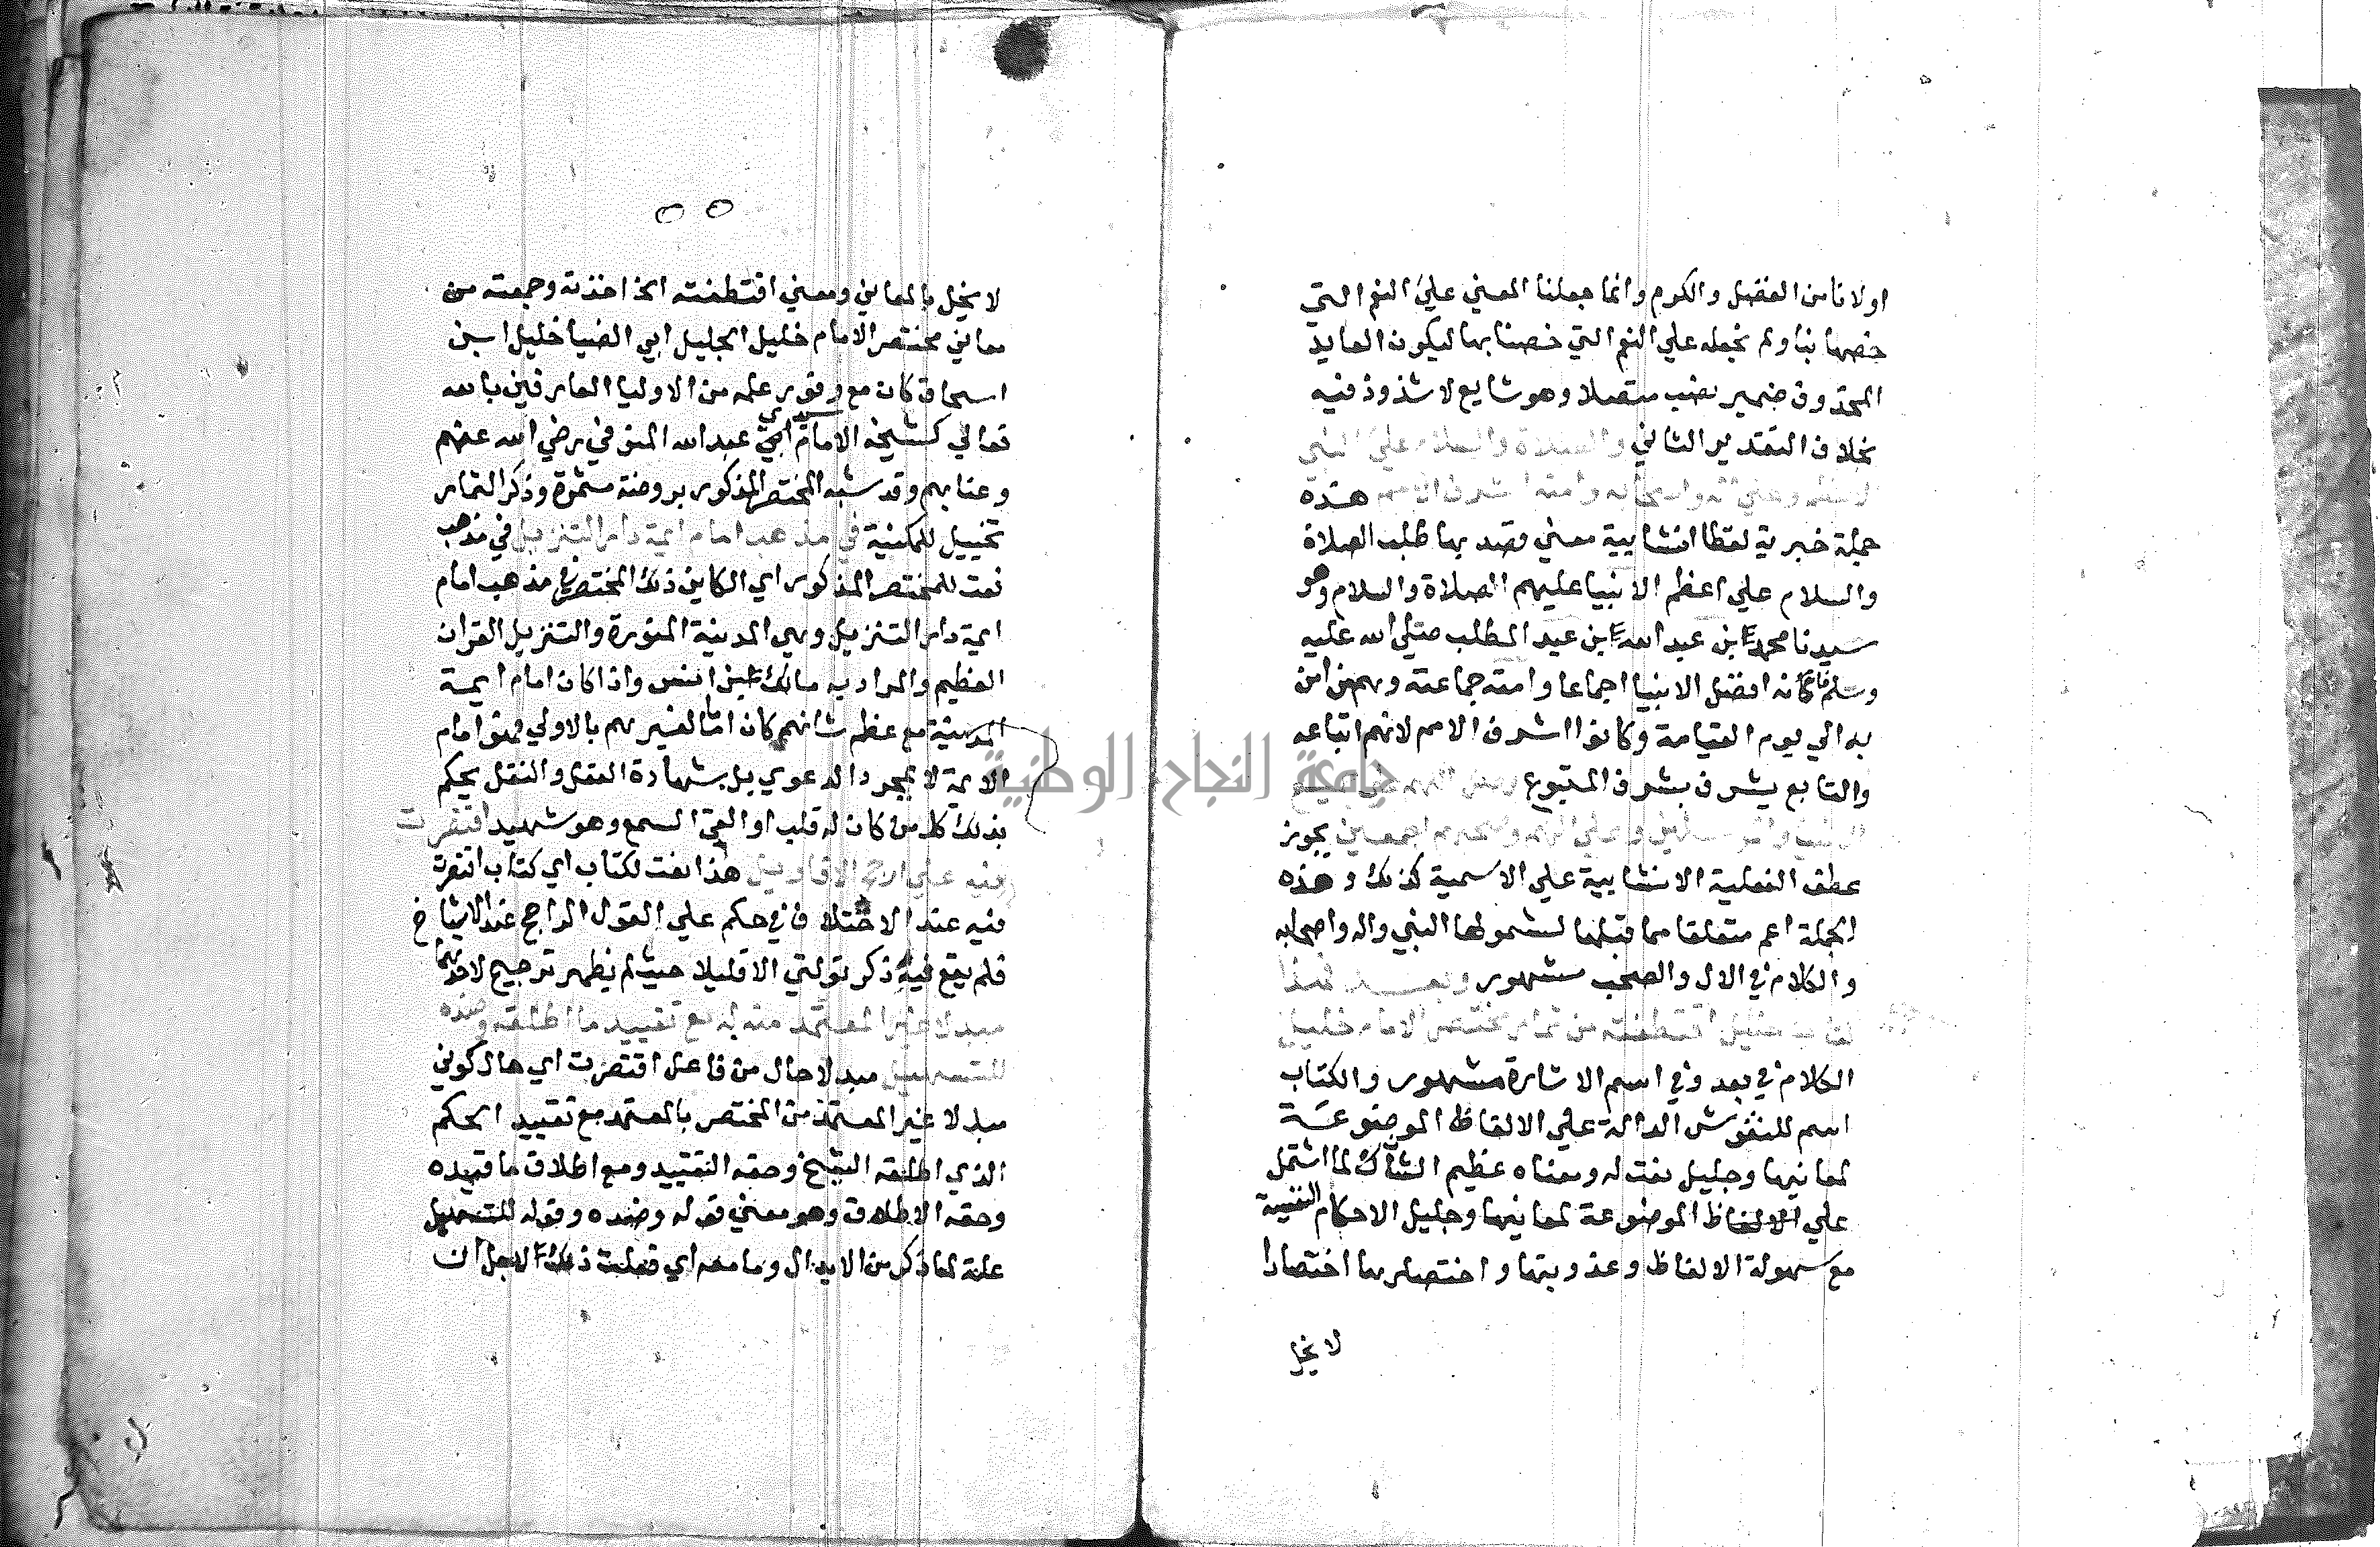 اولانا من الفضل والكرم وانما جعلنا المعني علي النعم التي
خصها بنا ولم نجعله علي النعم التي خصنا بها ليكون العايد
المحذوف ضمير نصب متصلا وهو شايع لا شذوذ فيه
بخلاف التقدير الثاني والصلاة والسلام علي النبي
وعلي اله واصحابه وامته اشرف الامم هذه
جملة خبرية لفظا انشايية معني وقصد بها طلب الصلاة
والسلام علي اعظم الانبيا عليهم الصلاة والسلام وهو
سيدنا محمد ابن عبد الله ابن عبد المطلب صلي الله عليه
وسلم فانه افضل الانبيا اجماعا وامته جماعته وهم من امن
به الي يوم القيامة وكانوا اشرف الامم لانهم اتباعه
والتابع يشرف بشرف المتبوع
اجمعين يجوز
عطف الفعلية الانشايية علي الاسمية كذلك وهذه
الجملة اعم متعلقا مما قبلها لشمولها النبي واله واصحابه
والكلام في الال والصحب مشهور وبعد فهذا
كتاب جليل اقتطفته من ثمار مختصر الامام خليل
الكلام في بعد وفي اسم الاشارة مشهور والكتاب
اسم للنقوش الدالة علي الالفاظ الموضوعة
لمعانيها وجليل نعت له ومعناه عظيم الشان لما اشتمل
علي الالفاظ الموضوعة لمعانيها وجليل الاحكام النفيسة
مع سهولة الالفاظ وعذوبتها واختصارها اختصارا
لا يخل
لا يخل بالمعاني ومعني اقتطفته الخ اخذته وجمعته من
معاني مختصر الامام خليل الجليل ابي الضيا خليل ابن
اسحاق كان مع وفور علمه من الاوليا العارفين بالله
تعالي كشيخه الامام سيدي ابي عبد الله المنوفي رضي الله عنهم
وعنا بهم وقد شبه المختصر المذكور بروضة مثمرة وذكر الثمار
تخييل للمكنية في مذهب امام ايمة دار التنزيل في مذهب
نعت للمختصر المذكور اي الكاين ذلك المختصر في مذهب امام
ايمة دار التنزيل وهي المدينة المنورة والتنزيل القران
العظيم والمراد به مالك ابن انس واذا كان امام ايمة
المدينة مع عظم شانهم كان اماما لغيرهم بالاولي فهو امام
الايمة لا بمجرد الدعوي بل بشهادة العقل والنقل يحكم
بذلك كل من كان له قلب او القي السمع وهو شهيد اقتصرت
فيه علي ارجح الاقاويل هذا نعت لكتاب اي كتاب اقتصرت
فيه عند الاختلاف في حكم علي القول الراجح عند الاشياخ
فلم يقع فيه ذكر قولين الا قليلا حيث لم يظهر ترجيح لاحدهما
مبدلا غير المعتمد منه به مع تقييد ما اطلقه وضده
للتسهيل مبدلا حال من فاعل اقتصرت اي حال كوني
مبدلا غير المعتمد من المختصر بالمعتمد مع تقييد الحكم
الذي اطلقه الشيخ وحقه التقييد ومع اطلاق ما قيده
وحقه الاطلاق وهو معني قوله وضده وقوله للتسهيل
علة لما ذكر من الابدال وما معه اي فعلت ذلك لاجل ان
جامعة النجاح الوطنية